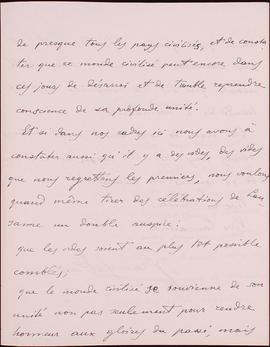 de presque tous les pays civilisés, et de consta-
ter que ce monde civilisé peut encore dans
ces jours de désarroi et de trouble reprendre
conscience de sa profonde unité.
Et si dans nos cadres ici nous avons à
constater aussi qu'il y a des vides, des vides
que nous regrettons les premiers, nous voulons
quand même tirer des célébrations de Lau-
sanne un double auspice:
que les vides soient au plus tôt possible
comblés;
que le monde civilisé se souvienne de son
unité non pas seulement pour rendre
honneur aux gloires du passé, mais